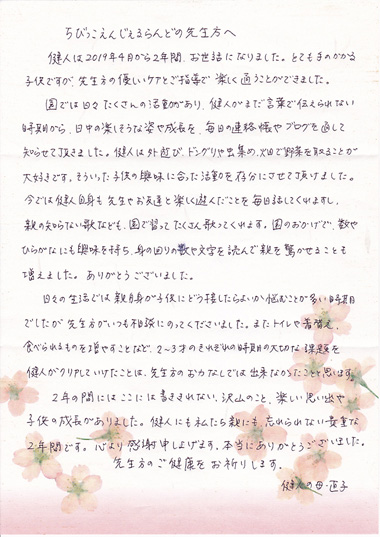 ちびっこえんじぇるらんどの先生方へ
健人は2019年4月から2年間、お世話になりました。とても手のかかる
子供ですが、先生方の優しいケアとご指導で楽しく通うことができました。
園では日々たくさんの活動があり、健人がまだ言葉で伝えられない
時期から、日中の楽しそうな姿や成長を、毎日の連絡帳やブログを通して
知らせて頂きました。健人は外遊び、ドングリや虫集め、畑で野菜を取ることが
大好きです。そういった子供の興味に合った活動を存分にさせて頂けました。
今では健人自身も先生やお友達と楽しく遊んだことを毎日話してくれますし、
親の知らない歌なども、園で習ってたくさん歌ってくれます。園のおかげで、数や
ひらがなにも興味を持ち、身の回りの数や文字を読んで親を驚かせることも
増えました。ありがとうございました。
日々の生活では親自身が子供にどう接したらよいか悩むことが多い時期
でしたが、先生方がいつも相談にのってくださいました。またトイレや着替え、
食べられるものを増やすことなど、2〜3才のそれぞれの時期の大切な課題を
健人がクリアしていけたことは、先生方のお力なしでは出来なかったことと思います。
2年の間にはここには書ききれない沢山のこと、楽しい思い出や
子供の成長がありました。健人にも私たち親にも、忘れられない貴重な
2年間です。心より感謝申し上げます。本当にありがとうございました。
先生方のご健康をお祈りします。
健人の母・直子